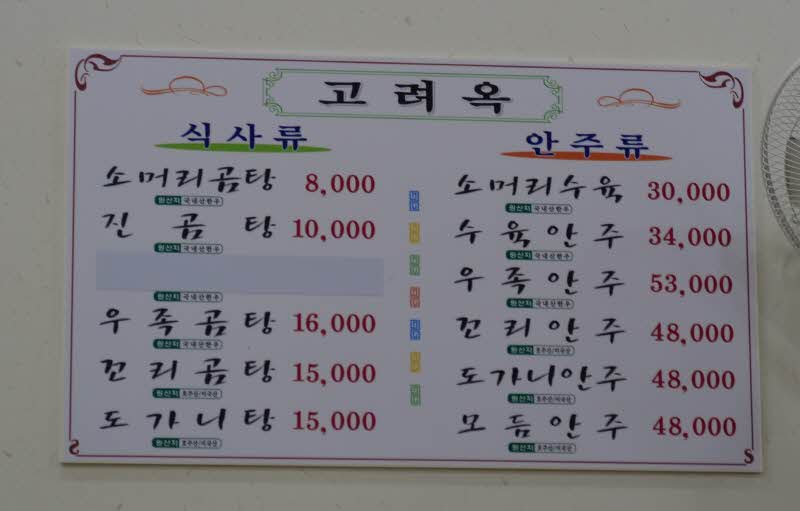 고려옥
식사류
소머리곰탕 8,000
원산지 국내산한우
진곰탕 10,000
원산지 국내산한우
원산지 국내산한우
우족곰탕 16,000
원산지 국내산한우
꼬리곰탕 15,000
원산지 호주산/미국산
도가니탕 15,000
원산지 호주산/미국산
안주류
소머리수육 30,000
원산지 국내산한우
수육안주 34,000
원산지 국내산한우
우족안주 53,000
원산지 국내산한우
꼬리안주 48,000
원산지 호주산/미국산
도가니안주 48,000
원산지 호주산/미국산
모듬안주 48,000
원산지 호주산/미국산